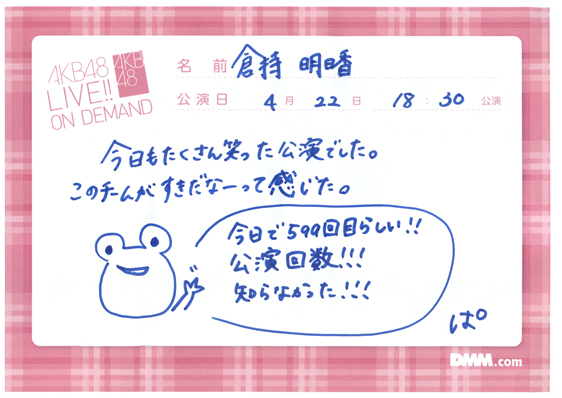 AKB48
LIVE!!
ON DEMAND
AKB
48
名 前 倉持 明日香
公演日 4月 22日 18:30 公演
今日もたくさん笑った公演でした。
このチームがすきだなーって感じた。
今日で599回目らしい!!
公演回数!!!
知らなかった!!!
ぱ
DMM.com